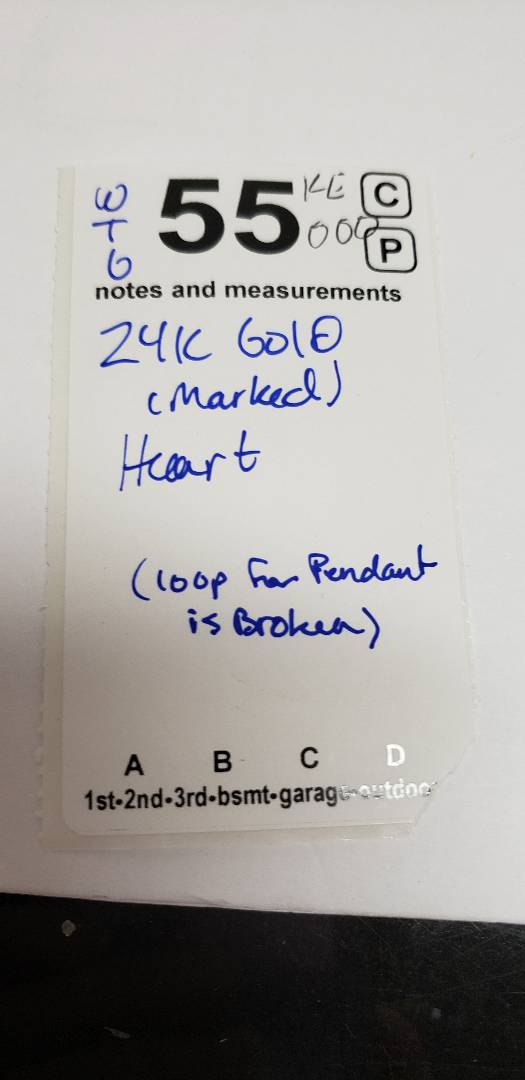 W
T
G
55
KE
000
C
P
notes and measurements
24K GOLD
(Marked)
Heart
(loop For Pendant
is Broken)
A B C D
1st-2nd-3rd-bsmt-garage-outdoo